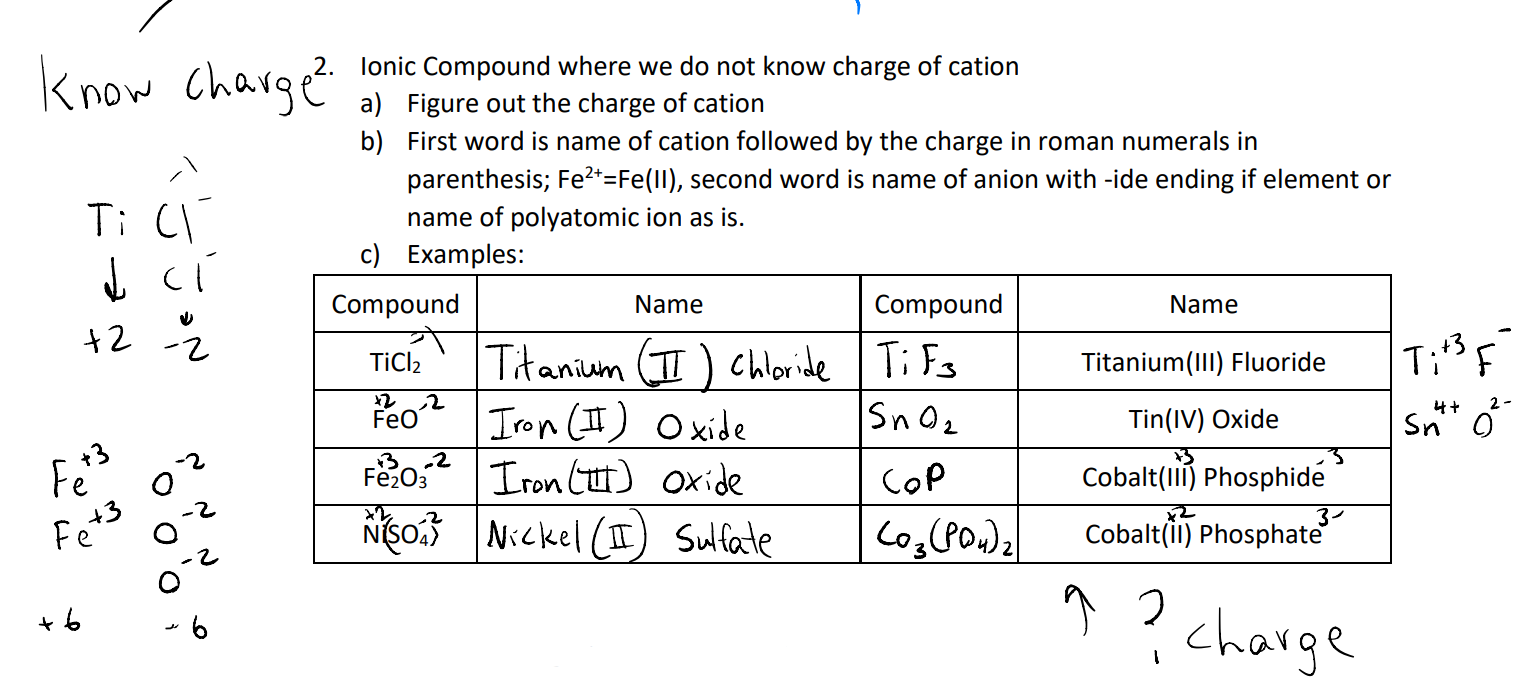 Know charge
2. Ionic Compound where we do not know charge of cation
a) Figure out the charge of cation
b) First word is name of cation followed by the charge in roman numerals in
parenthesis; Fe²⁺=Fe(II), second word is name of anion with -ide ending if element or
name of polyatomic ion as is.
c) Examples:
Ti Cl⁻
↓ Cl⁻
+2 -2
Compound Name Compound Name
TiCl₂ Titanium (II) Chloride TiF₃ Titanium(III) Fluoride Ti⁺³ F⁻
FeO +2 -2 Iron (II) Oxide SnO₂ Tin(IV) Oxide Sn⁴⁺ O²⁻
Fe₂O₃ +3 -2 Iron (III) Oxide CoP Cobalt(III) Phosphide +3 -3
NiSO₄ +2 -2 Nickel (II) Sulfate Co₃(PO₄)₂ Cobalt(II) Phosphate +2 3-
Fe⁺³ O⁻²
Fe⁺³ O⁻²
O⁻²
+6 -6
↑ ? charge